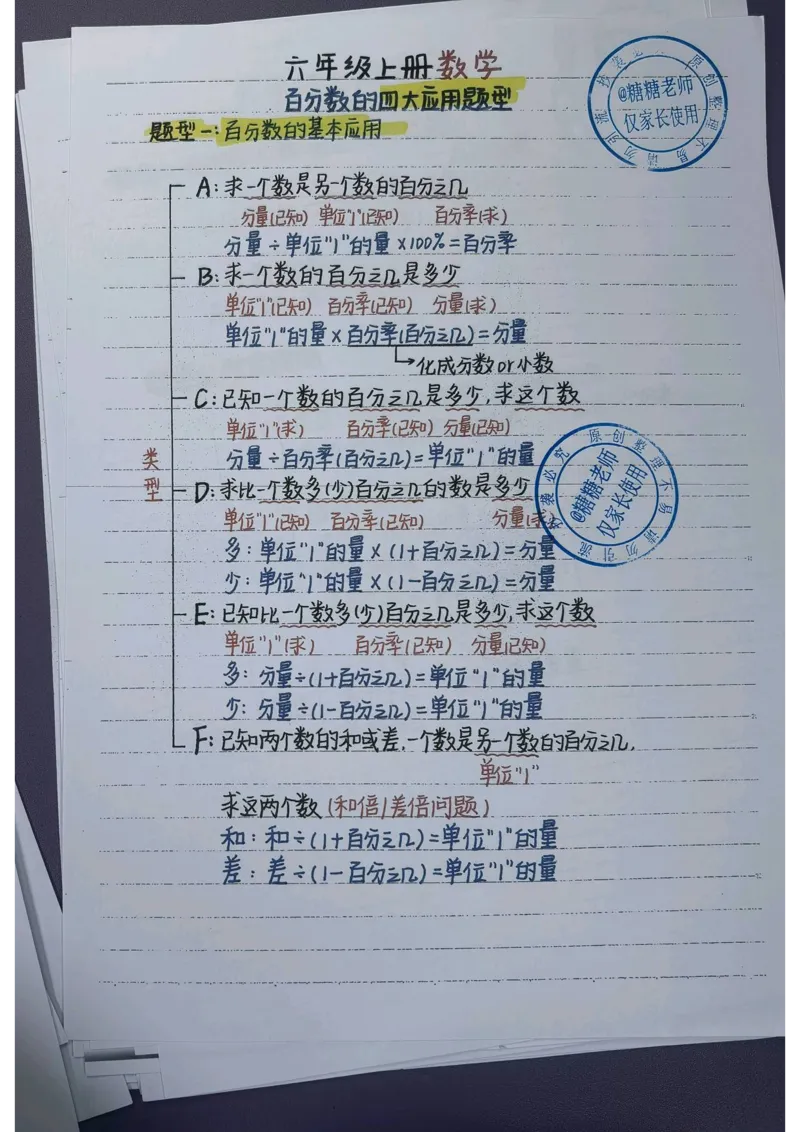 六年级上册数学
百分数的四大应用题型
题型一:百分数的基本应用
抄袭必究 原创整理不易 请勿引流
@糖糖老师
仅家长使用
类型
A:求一个数是另一个数的百分之几
分量(已知) 单位"1"(已知) 百分率(求)
分量÷单位"1"的量×100%=百分率
B:求一个数的百分之几是多少
单位"1"(已知) 百分率(已知) 分量(求)
单位"1"的量×百分率(百分之几)=分量
化成分数or小数
C:已知一个数的百分之几是多少,求这个数
单位"1"(求) 百分率(已知) 分量(已知)
分量÷百分率(百分之几)=单位"1"的量
D:求比一个数多(少)百分之几的数是多少
单位"1"(已知) 百分率(已知) 分量(求)
多:单位"1"的量×(1+百分之几)=分量
少:单位"1"的量×(1-百分之几)=分量
抄袭必究 原创整理不易 请勿引流
@糖糖老师
仅家长使用
E:已知比一个数多(少)百分之几是多少,求这个数
单位"1"(求) 百分率(已知) 分量(已知)
多:分量÷(1+百分之几)=单位"1"的量
少:分量÷(1-百分之几)=单位"1"的量
F:已知两个数的和或差,一个数是另一个数的百分之几,
单位"1"
求这两个数(和倍/差倍问题)
和:和÷(1+百分之几)=单位"1"的量
差:差÷(1-百分之几)=单位"1"的量